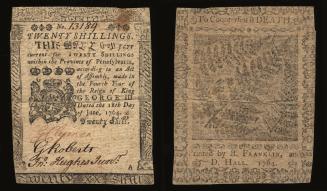 No. 13189
TWENTY SHILLINGS.
THIS BILL shall pass
current for TWENTY SHILLINGS
within the Province of Pennsylvania,
according to an Act
of Assembly, made in
the Fourth Year of
the Reign of King
GEORGE III.
Dated the 18th Day
of June, 1764.
Twenty Shill.
G Roberts
Twenty Shill
To Counterfeit is DEATH.
Printed by B. FRANKLIN, and
D. HALL. 1764.